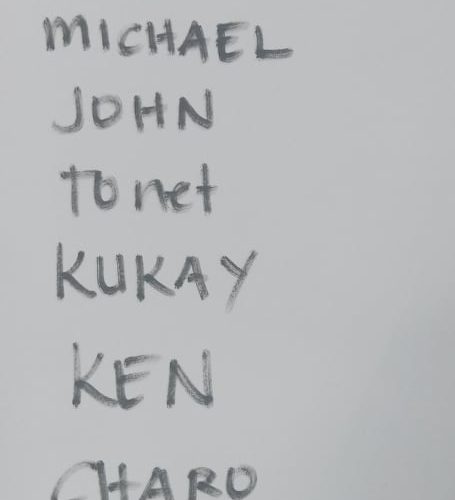 MICHAEL
JOHN
Tonet
KUKAY
KEN
CHARO